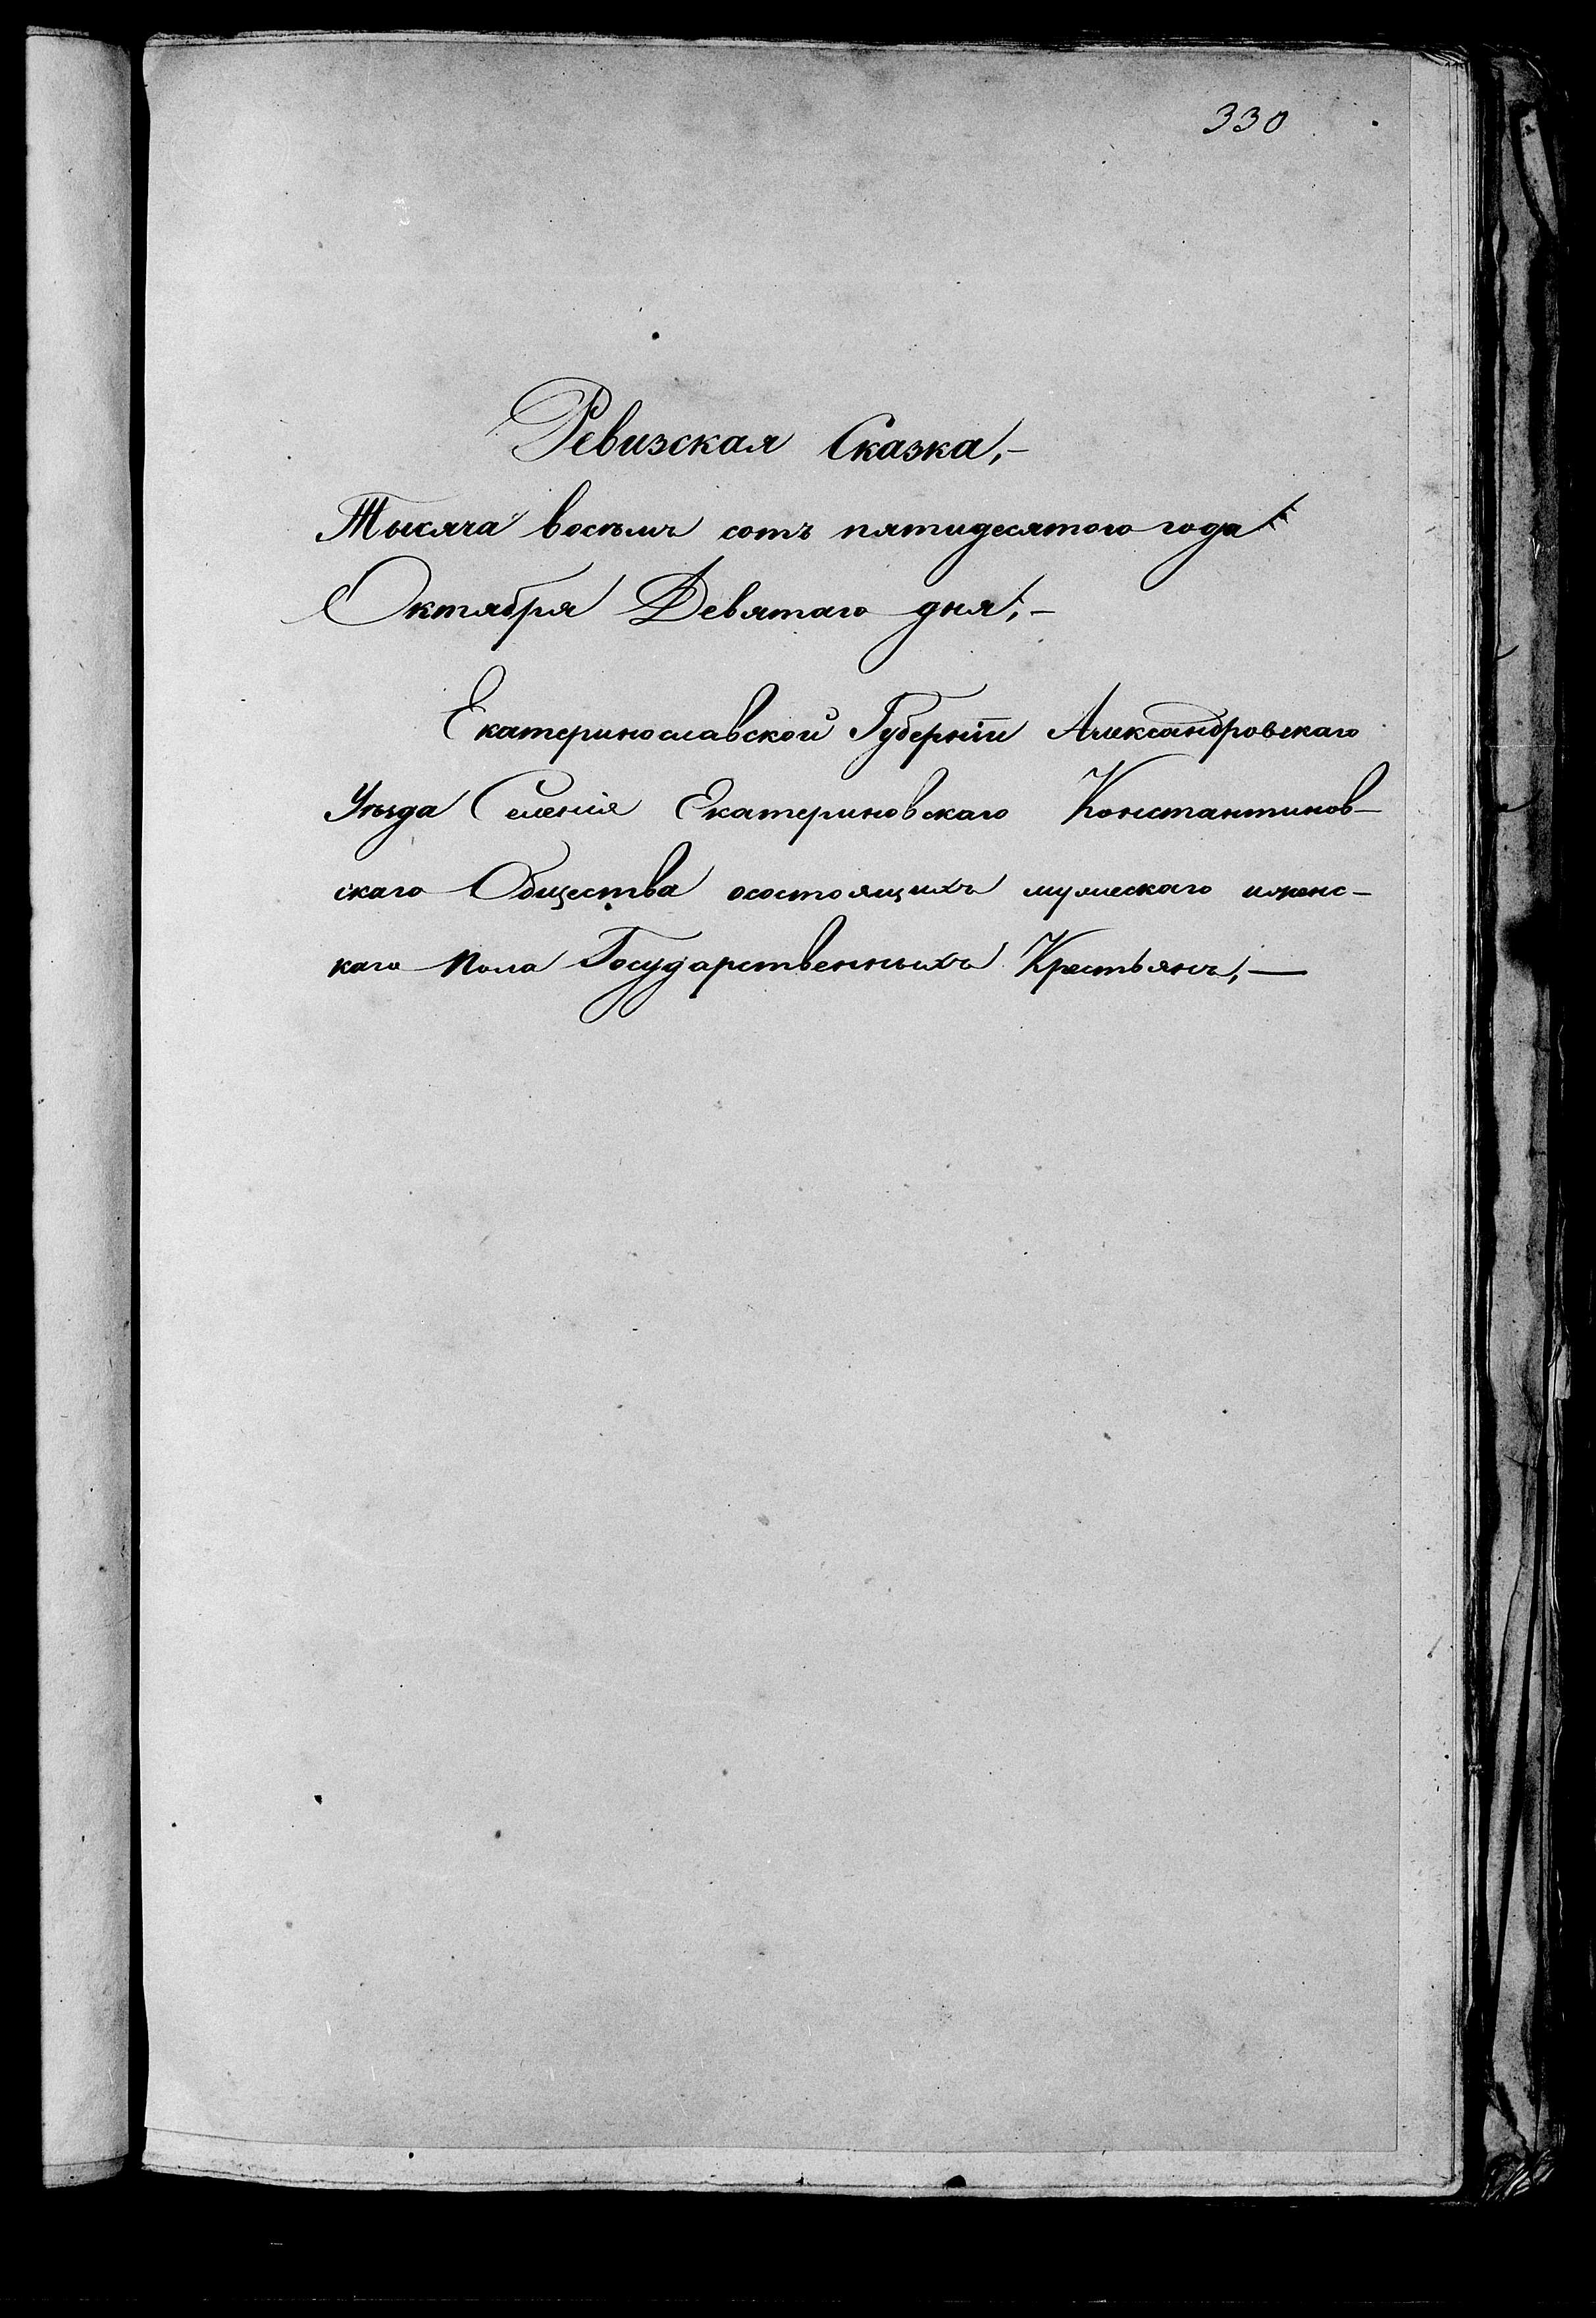 330
Ревизская Сказка,-
Тысяча восемь сотъ пятидесятого года
Октября Девятаго дня;-
Екатеринославской Губерніи Александровскаго
Уѣзда Селенія Екатериновскаго Константинов-
скаго Общества осостоящихъ мужескаго иженс-
каго Пола Государственныхъ Крестьянъ,—